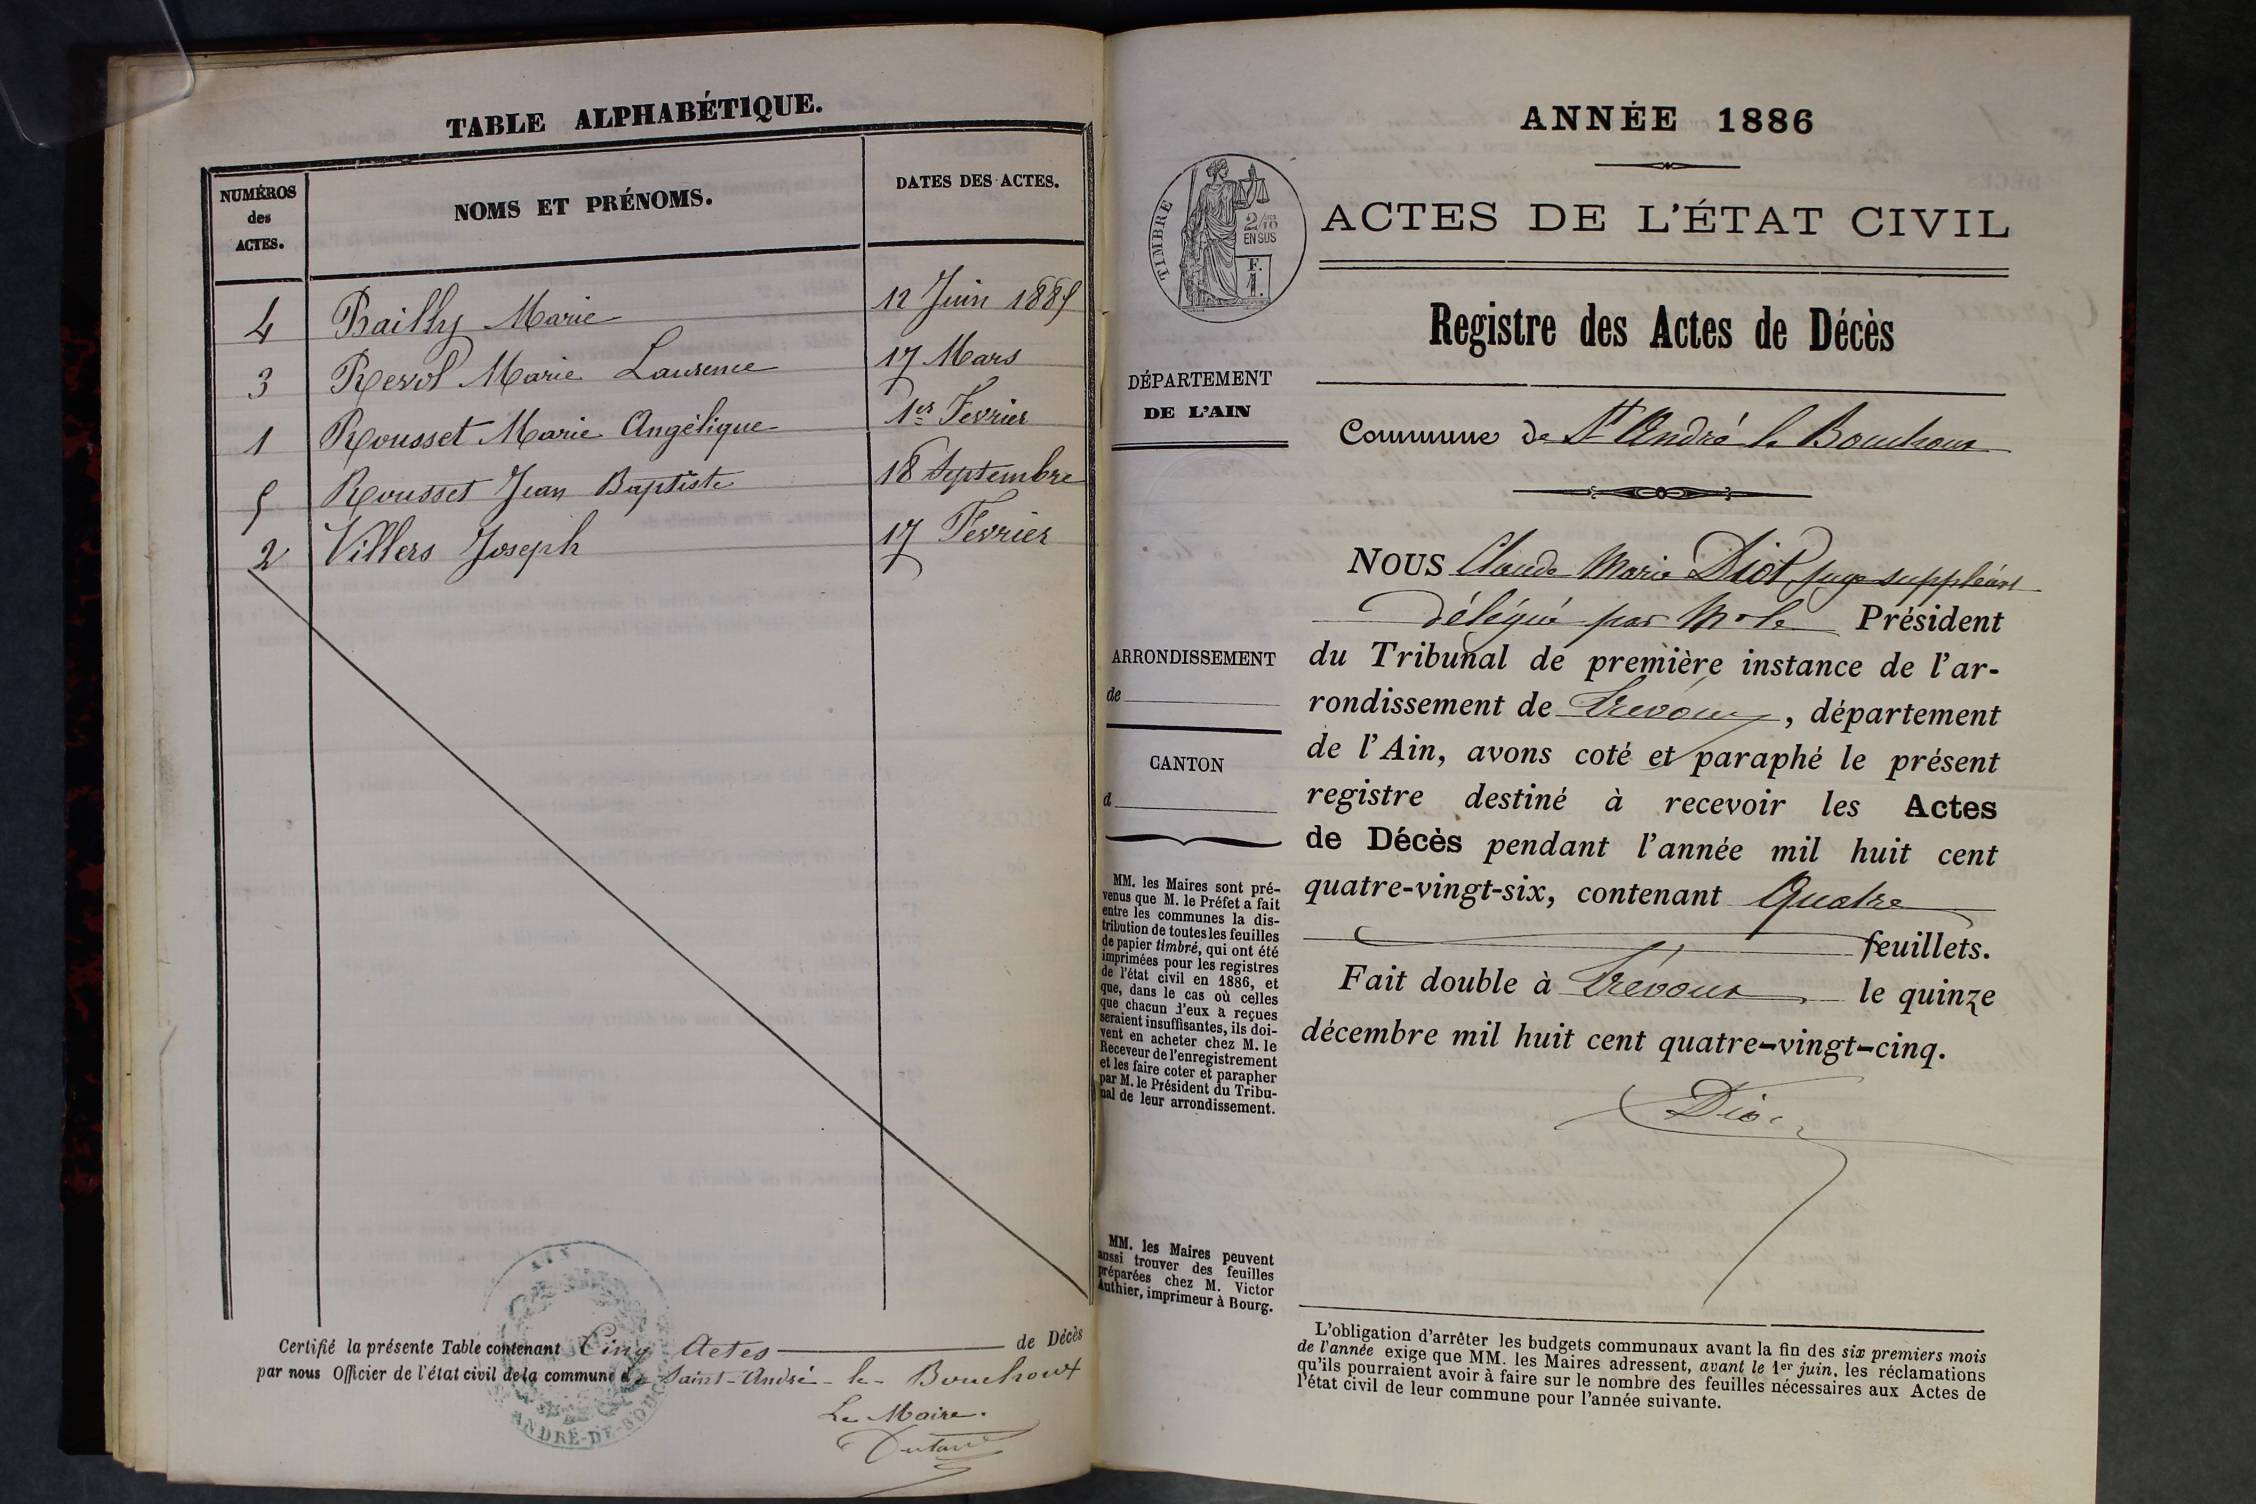 TABLE ALPHABÉTIQUE.
NUMÉROS des ACTES. NOMS ET PRÉNOMS. DATES DES ACTES.
4 Bailly Marie 12 Juin 1885
3 Revol Marie Laurence 17 Mars
1 Rousset Marie Angélique 1er Fevrier
5 Rousset Jean Baptiste 18 Septembre
2 Villers Joseph 17 Fevrier
Certifié la présente Table contenant Cinq Actes de Décès
par nous Officier de l'état civil de la commune de Saint-André-le-Bouchoux
Le Maire.
AIN
ANDRÉ-DE-BOUC
ANNÉE 1886
ACTES DE L'ÉTAT CIVIL
TIMBRE
2/10 EN SUS
F. 1.
Registre des Actes de Décès
DÉPARTEMENT
DE L'AIN
Commune de St André le Bouchoux
ARRONDISSEMENT
de
CANTON
d
MM. les Maires sont pré-
venus que M. le Préfet a fait
entre les communes la dis-
tribution de toutes les feuilles
de papier timbré, qui ont été
imprimées pour les registres
de l'état civil en 1886, et
que, dans le cas où celles
que chacun d'eux a reçues
seraient insuffisantes, ils doi-
vent en acheter chez M. le
Receveur de l'enregistrement
et les faire coter et parapher
par M. le Président du Tribu-
nal de leur arrondissement.
MM. les Maires peuvent
aussi trouver des feuilles
préparées chez M. Victor
Authier, imprimeur à Bourg.
NOUS Claude Marie Diot, juge suppléant
délégué par Mr le Président
du Tribunal de première instance de l'ar-
rondissement de Trévoux, département
de l'Ain, avons coté et paraphé le présent
registre destiné à recevoir les Actes
de Décès pendant l'année mil huit cent
quatre-vingt-six, contenant Quatre
feuillets.
Fait double à Trévoux le quinze
décembre mil huit cent quatre-vingt-cinq.
Diot
L'obligation d'arrêter les budgets communaux avant la fin des six premiers mois
de l'année exige que MM. les Maires adressent, avant le 1er juin, les réclamations
qu'ils pourraient avoir à faire sur le nombre des feuilles nécessaires aux Actes de
l'état civil de leur commune pour l'année suivante.